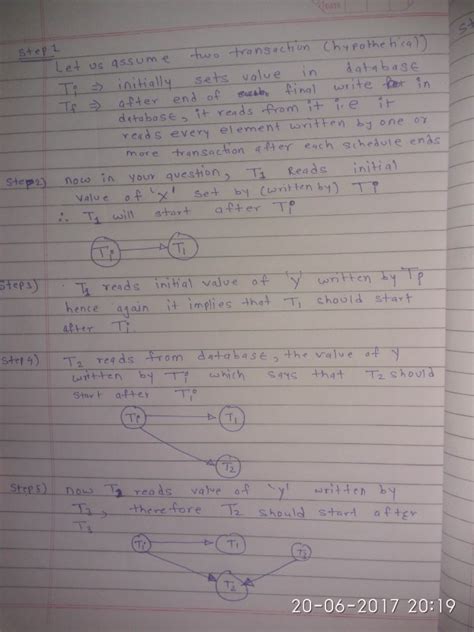 Step 1
Let us assume two transection (hypothetical)
Ti ⇒ initially sets value in database
Tf ⇒ after end of final write in
database, it reads from it i.e it
reads every element written by one or
more transaction after each schedule ends
Step 2) now in your question, T1 Reads initial
value of 'x' set by (written by) Ti
∴ T1 will start after Ti
Ti T1
Step 3) T1 reads initial value of 'y' written by Ti
hence again it implies that T1 should start
after Ti
Step 4) T2 reads from database, the value of Y
written by Ti which says that T2 should
start after Ti
Ti T1
T2
Step 5) now T2 reads value of 'y' written by
T3, therefore T2 should start after
T3
Ti T1 T3
T2
20-06-2017 20:19